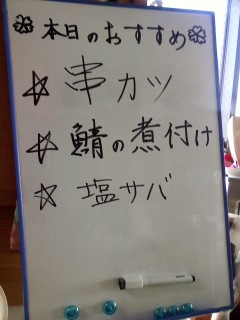 本日のおすすめ
☆串カツ
☆鯖の煮付け
☆塩サバ